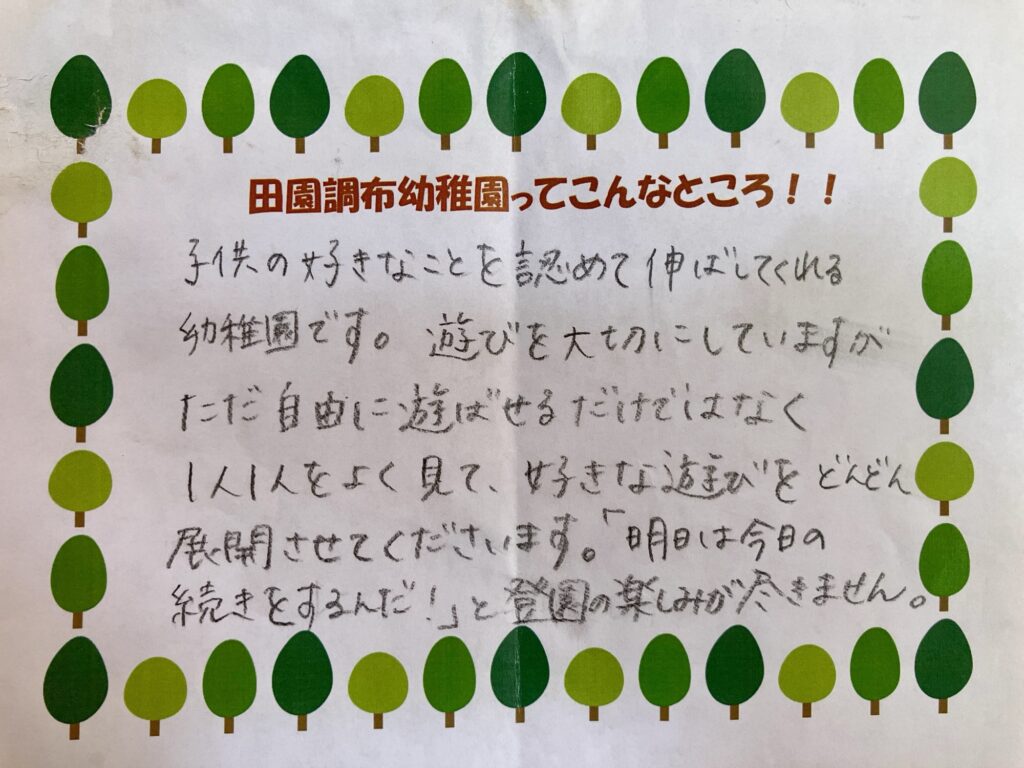 田園調布幼稚園ってこんなところ！！
子供の好きなことを認めて伸ばしてくれる
幼稚園です。遊びを大切にしていますが
ただ自由に遊ばせるだけではなく
1人1人をよく見て、好きな遊びをどんどん
展開させてくださいます。「明日は今日の
続きをするんだ！」と登園の楽しみが尽きません。